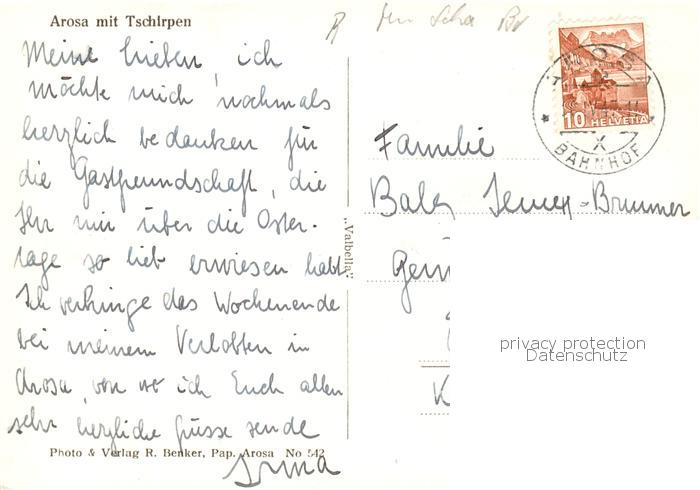 Arosa mit Tschirpen
Meine Lieben, ich
möchte mich nochmals
herzlich bedanken für
die Gastfreundschaft, die
Ihr mir über die Oster-
tage so lieb erwiesen habt.
Ich verbringe das Wochenende
bei meinem Verlobten in
Arosa, von wo ich Euch allen
sehr herzliche Grüsse sende
Irma
Photo & Verlag R. Benker, Pap. Arosa No 542
"Valbella"
10 HELVETIA
AROSA
X
BAHNHOF
Familie
-Brunner
K
privacy protection
Datenschutz